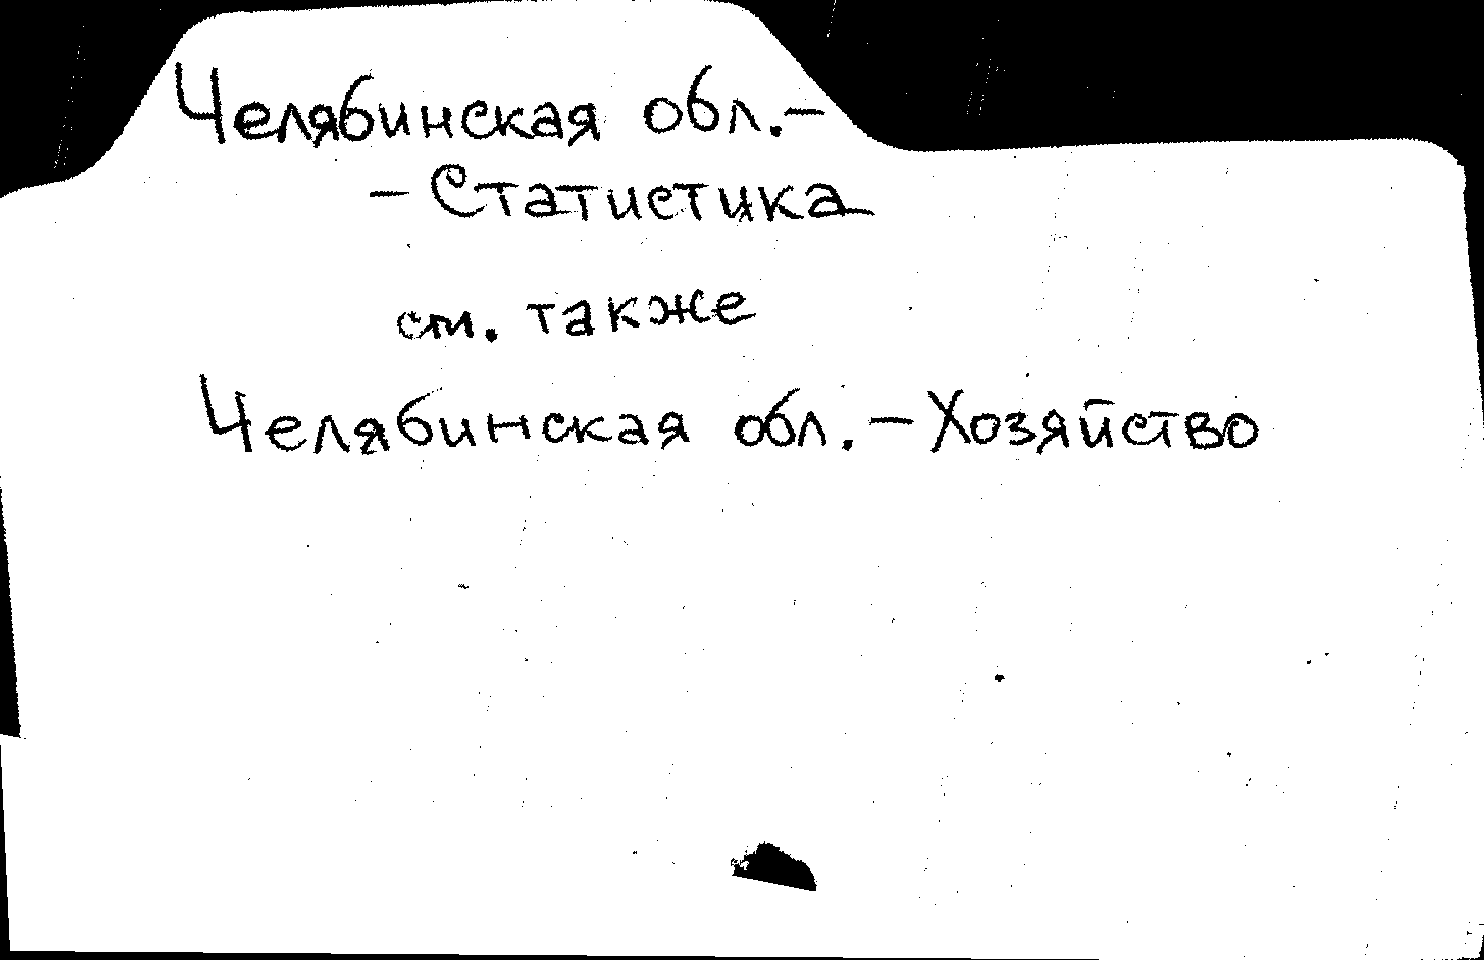 Челябинская обл.–
– Статистика
см. также
Челябинская обл. – Хозяйство